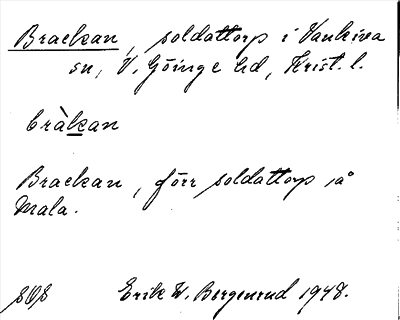 Brackan, soldattorp i Vankiva
sn, V. Göinge hd, Krist. l.
bràkan
Brackan, förr soldattorp på
Mala.
SOS Erik W. Bergenrud 1948.